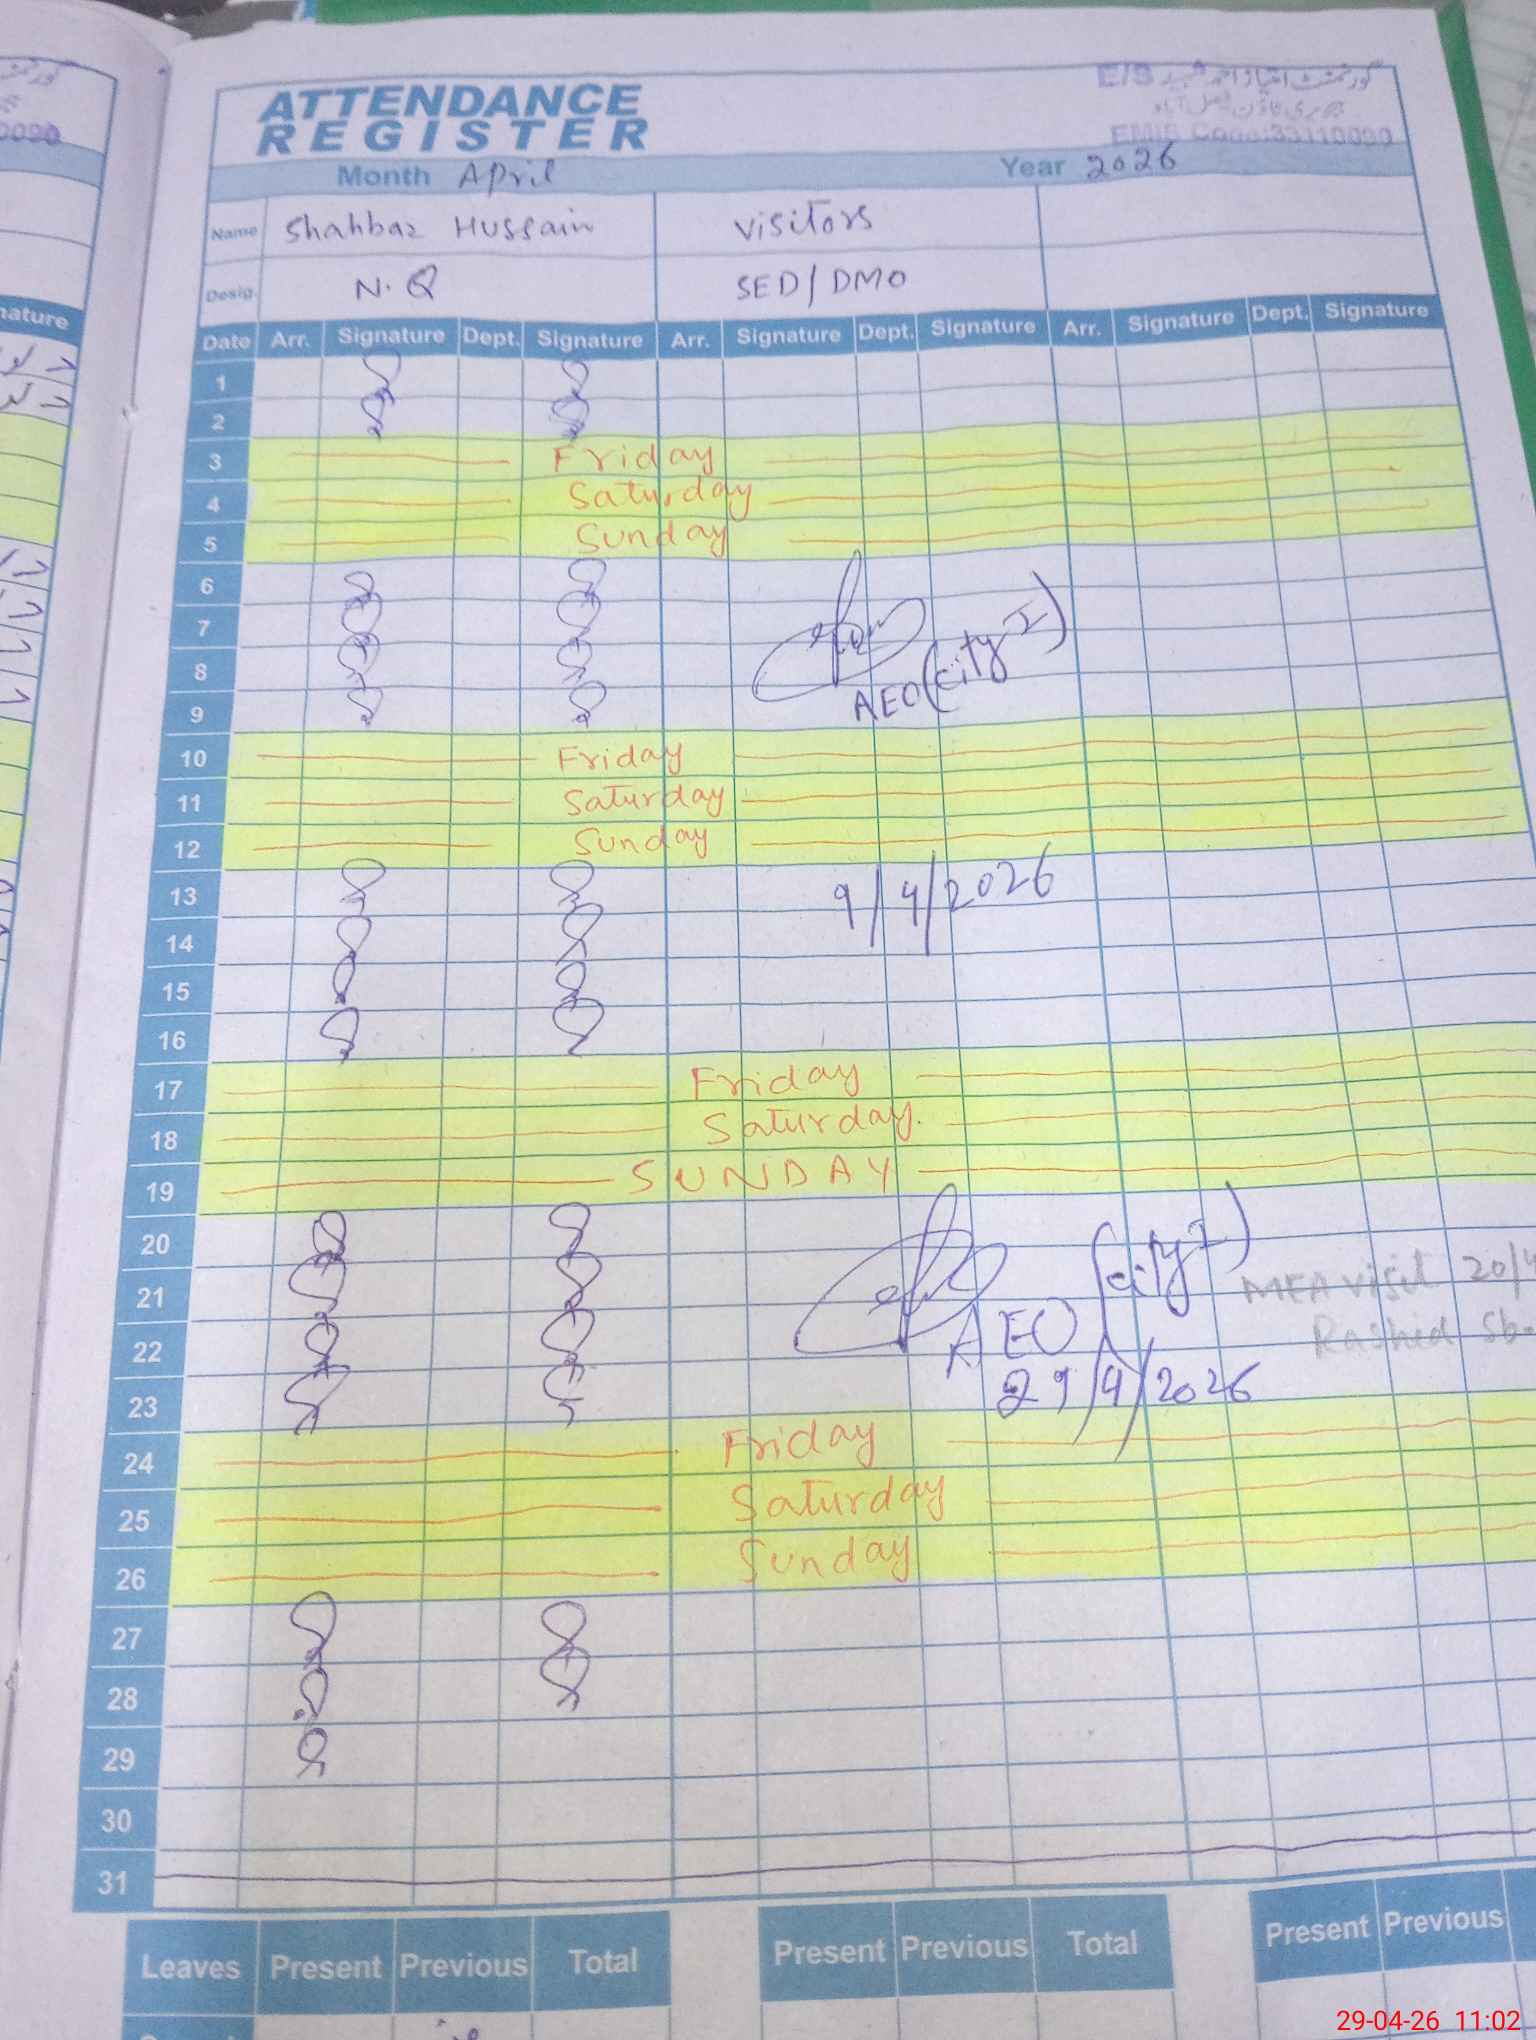 ATTENDANCE
REGISTER
گورنمنٹ امتیاز احمد شہید E/S
EMIS Code:33110090
Month April Year 2026
Name Shahbaz Hussain Visitors
Desig. N.Q SED/DMO
Date Arr. Signature Dept. Signature Arr. Signature Dept. Signature Arr. Signature Dept. Signature
nature
0090
1
2
3 Friday
4 Saturday
5 Sunday
6
7
8
9 AEO (city I)
10 Friday
11 Saturday
12 Sunday
13 9/4/2026
14
15
16
17 Friday
18 Saturday.
19 SUNDAY
20
21 MEA visit 20/4
22 AEO (city I) Rashid
23 29/4/2026
24 Friday
25 Saturday
26 Sunday
27
28
29
30
31
Leaves Present Previous Total Present Previous Total Present Previous
29-04-26 11:02